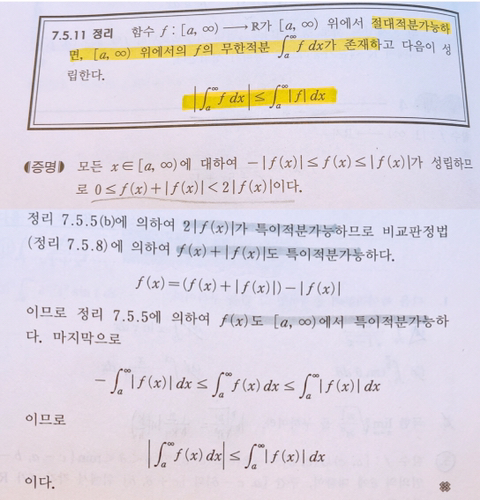 7.5.11 정리 함수 f : [a, ∞) ⟶ R가 [a, ∞) 위에서 절대적분가능하
면, [a, ∞) 위에서의 f의 무한적분 ∫ₐ^∞ f dx가 존재하고 다음이 성
립한다.
|∫ₐ^∞ f dx| ≤ ∫ₐ^∞ |f| dx
(증명) 모든 x∈[a, ∞)에 대하여 −|f(x)| ≤ f(x) ≤ |f(x)|가 성립하므
로 0 ≤ f(x)+|f(x)| < 2|f(x)|이다.
정리 7.5.5(b)에 의하여 2|f(x)|가 특이적분가능하므로 비교판정법
(정리 7.5.8)에 의하여 f(x)+|f(x)|도 특이적분가능하다.
f(x)=(f(x)+|f(x)|)−|f(x)|
이므로 정리 7.5.5에 의하여 f(x)도 [a, ∞)에서 특이적분가능하
다. 마지막으로
−∫ₐ^∞|f(x)| dx ≤ ∫ₐ^∞ f(x) dx ≤ ∫ₐ^∞|f(x)| dx
이므로
|∫ₐ^∞ f(x) dx| ≤ ∫ₐ^∞|f(x)| dx
이다. ※